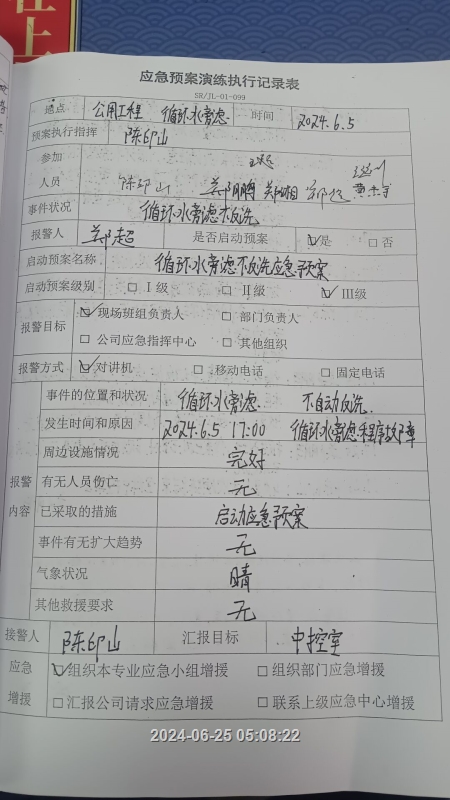 应急预案演练执行记录表
SR/JL-01-099
地点 公用工程 循环水旁滤 时间 2024.6.5
预案执行指挥 陈印山
参加
人员 陈印山
事件状况 循环水旁滤不反洗
报警人 郑超 是否启动预案 ☑是 □否
启动预案名称 循环水旁滤不反洗应急预案
启动预案级别 □ Ⅰ级 □ Ⅱ级 ☑ Ⅲ级
报警目标 ☑现场班组负责人 □ 部门负责人
□ 公司应急指挥中心 □ 其他组织
报警方式 ☑对讲机 □ 移动电话 □ 固定电话
事件的位置和状况 循环水旁滤. 不自动反洗
发生时间和原因 2024.6.5 17:00 循环水旁滤程序故障
周边设施情况 完好
报警 有无人员伤亡 无
内容 已采取的措施 启动应急预案
事件有无扩大趋势 无
气象状况 晴
其他救援要求 无
接警人 陈印山 汇报目标 中控室
应急 ☑组织本专业应急小组增援 □组织部门应急增援
增援 □汇报公司请求应急增援 □联系上级应急中心增援
2024-06-25 05:08:22